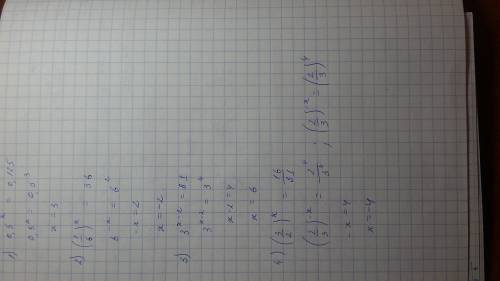 1) 0,5^x = 0,125
0,5^x = 0,5^3
x = 3
2) (1/6)^x = 36
6^-x = 6^2
-x = 2
x = -2
3) 3^(x-2) = 81
3^(x-2) = 3^4
x-2 = 4
x = 6
4) (3/2)^x = 16/81
(2/3)^-x = 2^4/3^4 ; (2/3)^-x = (2/3)^4
-x = 4
x = -4